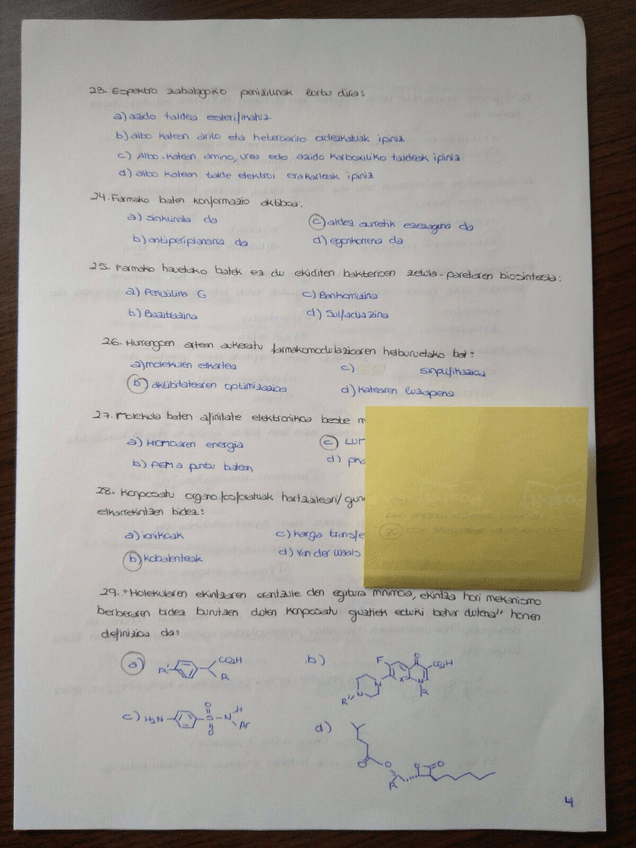 23. Espektro zabalagoko penizilinak lortu dira:
a) azido taldea esterifikatuz
b) albo katean arilo eta heteroarilo ordezkatuak ipiniz
c) Albo-katean amino, urea edo azido karboxiliko taldeak ipiniz
d) albo katean talde elektroi erakarleak ipiniz
24. Farmako baten konformazio aktiboa:
a) sinklinala da
c) aldez aurretik ezezaguna da
b) antiperiplanarra da
d) egonkorrena da
25. Farmako hauetako batek ez du ekiditen bakterioen zelula-paretaren biosintesia:
a) Penizilina G
c) Bankomizina
b) Bazitrazina
d) Sulfadiazina
26. Hurrengoen artean aukeratu farmakomodulazioaren helburuetako bat:
a) molekulen elkartea
c) sinplifikazioa
b) aktibitatearen optimizazioa
d) Katearen luzapena
27. Molekula baten afinitate elektronikoa beste m
a) HOMOaren energia
c) LUM
b) PEM a puntu batean
d) pKa
28. Konposatu organo fosforatuak hartzaileari/gune
elkarrekintzen bidez:
a) ionikoak
c) karga transfe
b) kobalenteak
d) Van der Waals
29. "Molekularen ekintzaren erantzule den egitura minimoa, ekintza hori mekanismo
berberaren bidez burutzen duten konposatu guztiek eduki behar dutena" honen
definizioa da:
a) R' CO2H R
b) F O CO2H N N X N R' R
c) H2N O S O N H Ar
d) O O R O O
4